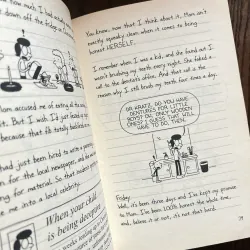 how much. I
down off the fridge a
Mom accused me of eating all the
But I wish. I'd just learned
because that I'd totally
had just been hired to write a
for the local newspaper, and
ing for material. So that modern
me into a local celebrity.
When your child
is being decep
You know, now that I think about it, Mom isn't
exactly squeaky clean when it comes to being
honest HERSELF.
I remember when I was a kid, and she found out I
wasn't brushing my teeth every night. She faked a
call to the dentist's office. And that call is the
reason why I still brush my teeth four times a day.
DR. KRATZ, DO YOU HAVE
DENTURES FOR LITTLE
BOYS? OH, ONLY WOODEN
ONES? I GUESS THAT WILL
HAVE TO DO, THEN.
Friday
Well, it's been three days and I've kept my promise
to Mom. I've been 100% honest the whole time,
and, believe it or not, it's not that hard.